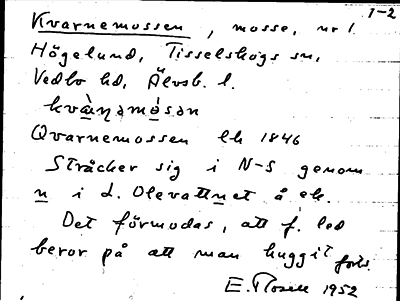 1-2
Kvarnemossen, mosse, nr 1
Högelund, Tisselskogs sn,
Vedbo hd, Älvsb. l.
kvàŋəmósən
Qvarnemossen ek 1846
Sträcker sig i N-S genom
n i d. Olevattnet å ek.
Det förmodas, att f. led
beror på att man huggit forts.
E. Rosell 1952